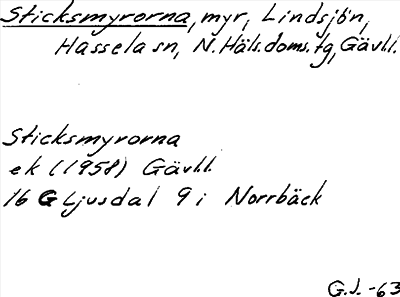 Sticksmyrorna, myr, Lindsjön,
Hassela sn, N. Häls. doms. tg, Gävl.l.
Sticksmyrorna
ek (1958) Gävl.l.
16 G Ljusdal 9 i Norrbäck
G.J. -63